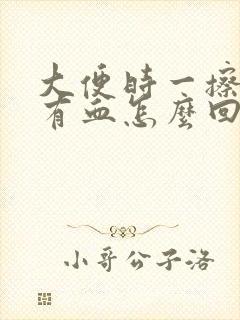 大便时一擦
有血怎麼回
小哥公子洛